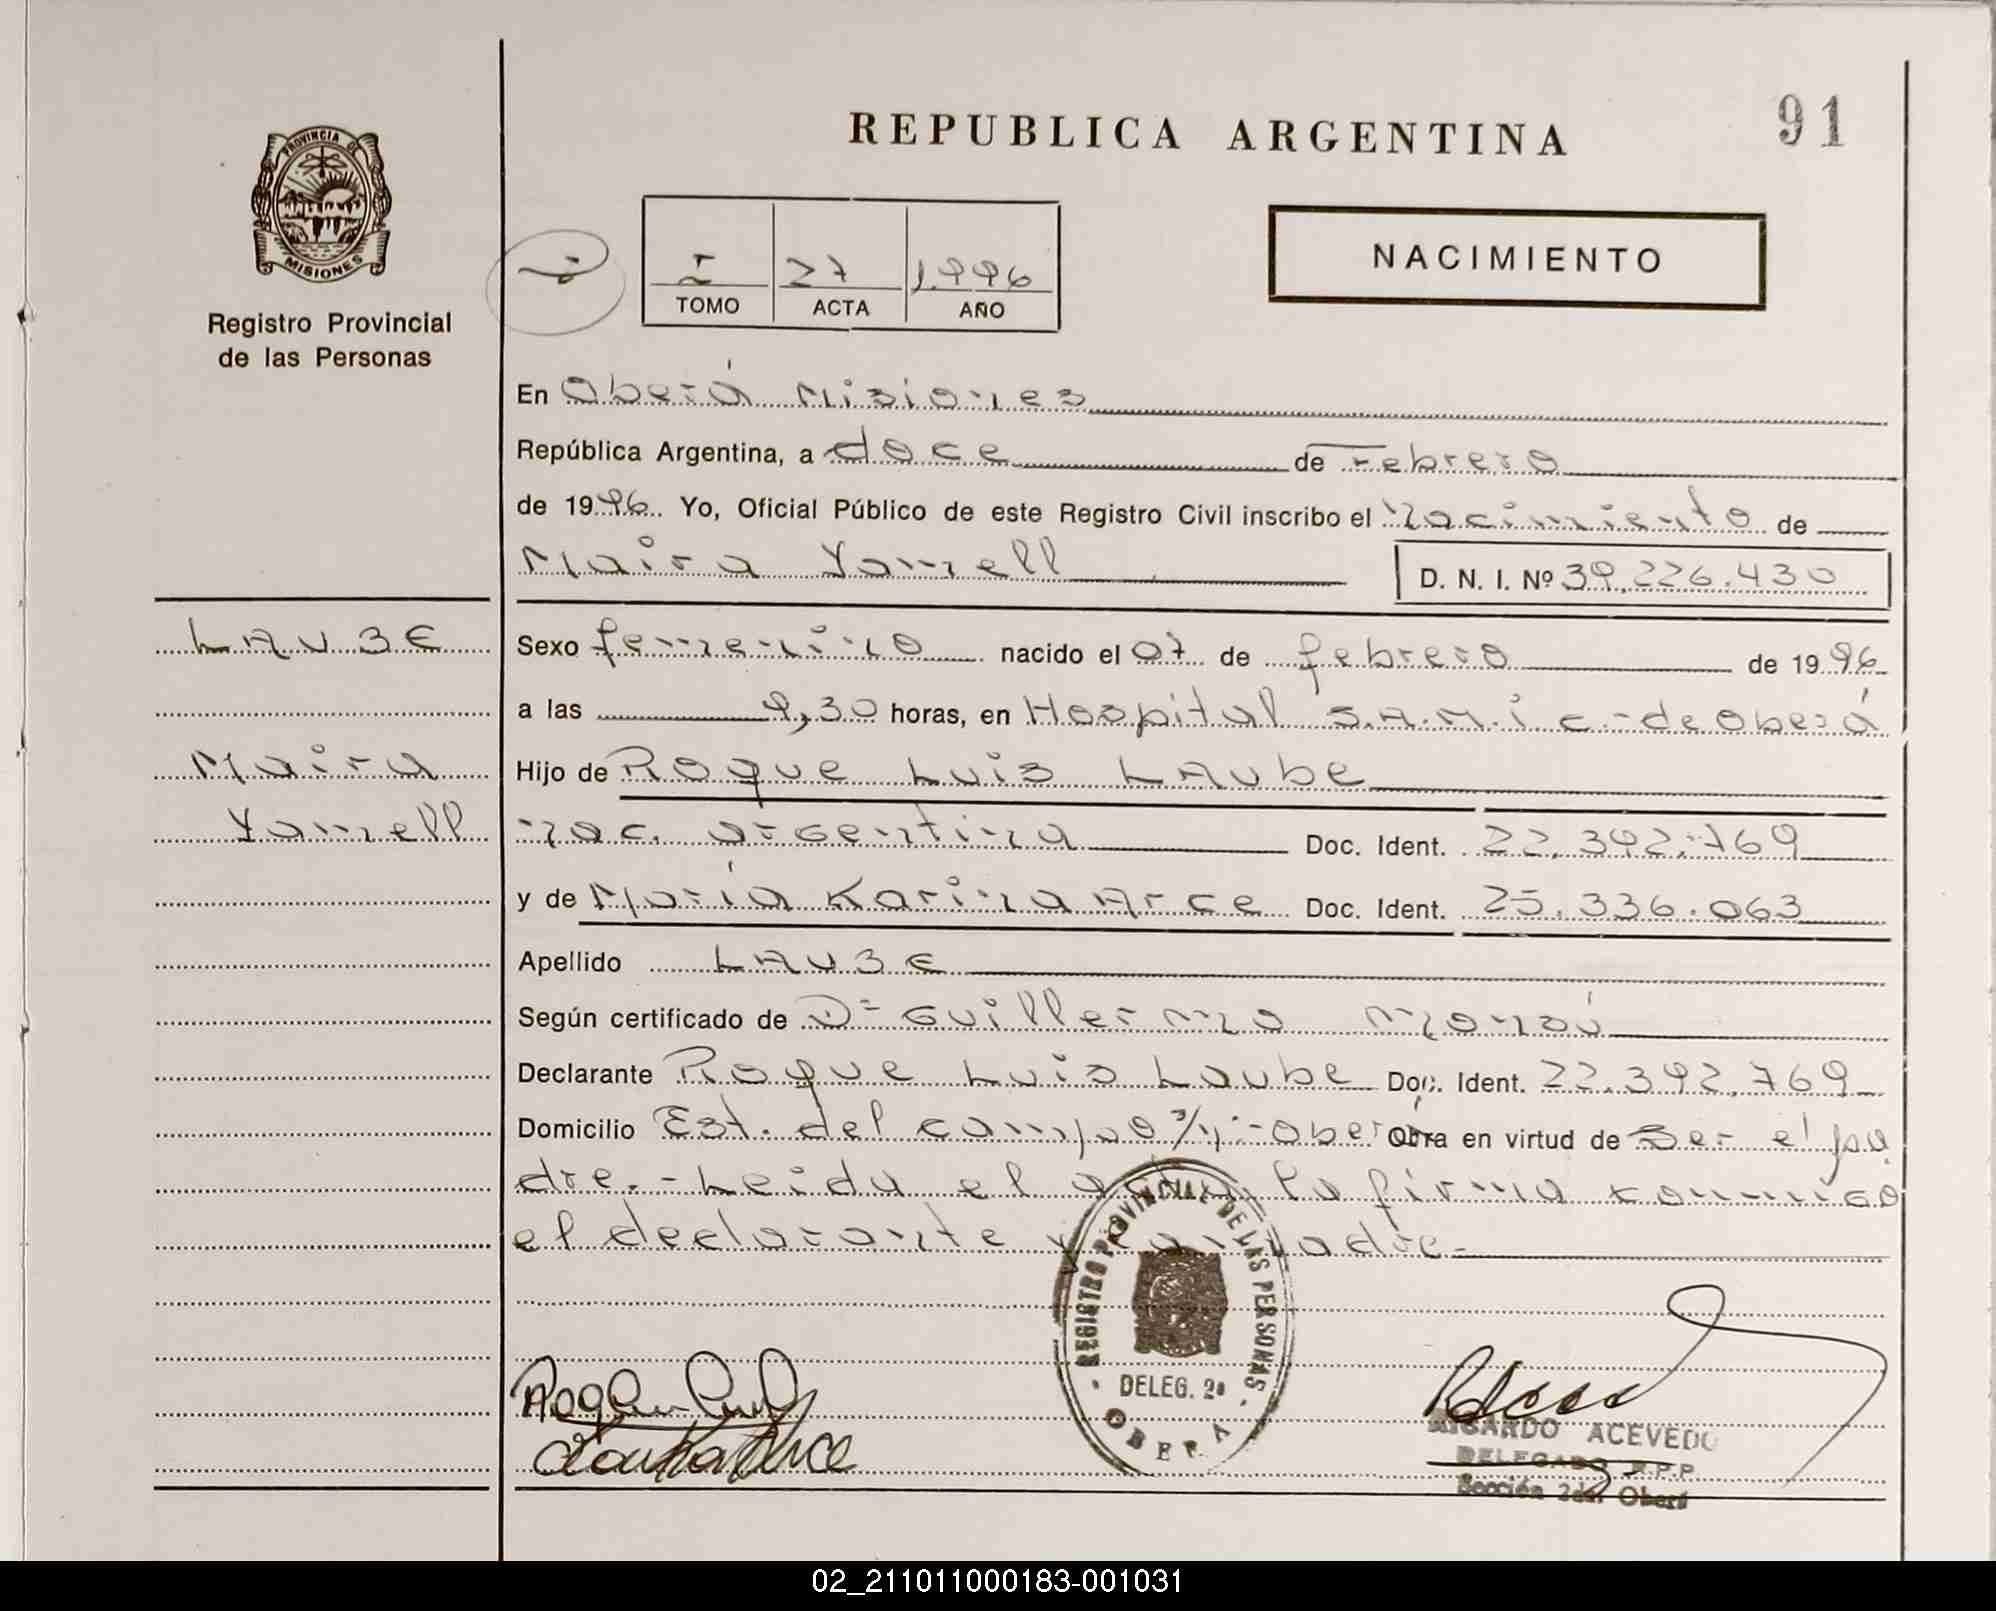 REPUBLICA ARGENTINA
91
PROVINCIA DE
MISIONES
Registro Provincial
de las Personas
I 27 1.996
TOMO ACTA AÑO
NACIMIENTO
En Oberá Misiones
República Argentina, a doce de Febrero
de 1996. Yo, Oficial Público de este Registro Civil inscribo el Nacimiento de
Maira Yamell
D. N. I. Nº 39.226.430
LAUBE
Maira
Yamell
Sexo femenino nacido el 07 de febrero de 1996
a las 9,30 horas, en Hospital S.A.M.i c.-de Oberá
Hijo de Roque Luis LAube
nac. argentina Doc. Ident. 22.392.769
y de María Karina Arce Doc. Ident. 25.336.063
Apellido LAUBE
Según certificado de Dr Guillermo
Declarante Roque Luis Laube Doc. Ident. 22.392.769
Domicilio Est. del campo Oberá Obra en virtud de Ser el pa
dre.- Leida el acta la firma conmigo
el declarante y la madre.-
REGISTRO PROVINCIAL DE LAS PERSONAS
DELEG. 2ª
OBERA
RICARDO ACEVEDO
DELEGADO R.P.P
Sección 2da. Oberá
02_211011000183-001031